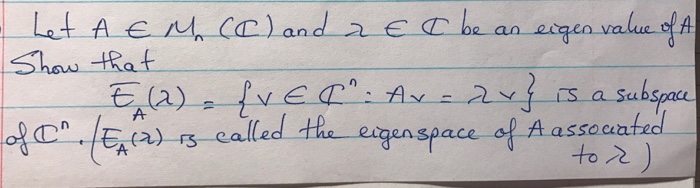 Let A ∈ Mn (ℂ) and λ ∈ ℂ be an eigen value of A
Show that
E_A(λ) = {v ∈ ℂⁿ : Av = λv} is a subspace
of ℂⁿ. (E_A(λ) is called the eigenspace of A associated
to λ)